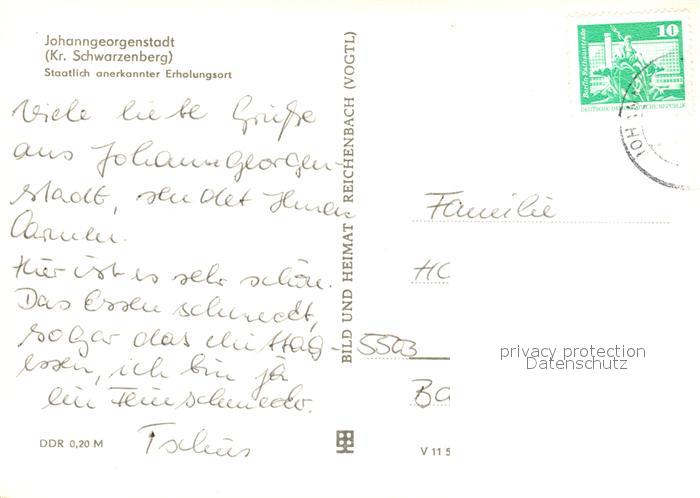 Johanngeorgenstadt
(Kr. Schwarzenberg)
Staatlich anerkannter Erholungsort
Viele liebe Grüße
aus Johanngeorgen-
stadt, sendet Ihnen
Carmen.
Hier ist es sehr schön.
Das Essen schmeckt,
sogar das Mittag-
essen, ich bin ja
ein Feinschmecker.
Tschüs
DDR 0,20 M
BILD UND HEIMAT REICHENBACH (VOGTL)
Berlin-Rathausstraße
10
DEUTSCHE DEMOKRATISCHE REPUBLIK
JOH
Familie
HO
5503
BA
V 11 5
privacy protection
Datenschutz